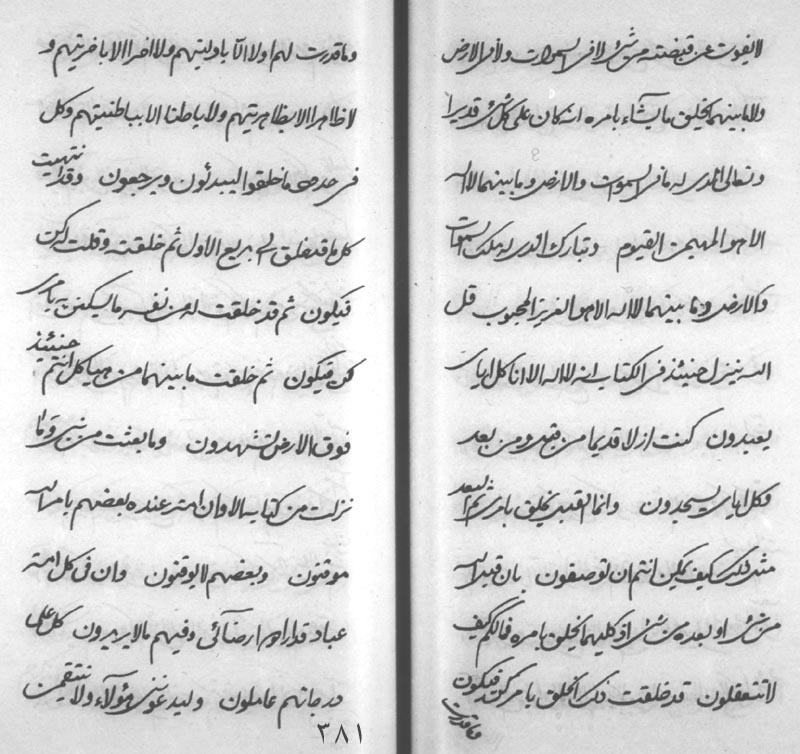 لا يفوت عن قبضته من شئ لا في السموات ولا في الارض
ولا ما بينهما يخلق ما يشاء بامره انه كان على كل شئ قديرا
وتعالى الذى له ما فى السموات والارض وما بينهما لا اله
الا هو المهيمن القيوم وتبارك الذى له ملك السموات
والارض وما بينهما لا اله الا هو العزيز المحبوب قل
الله ينزل حينئذ فى الكتاب انه لا اله الا انا كل اياى
يعبدون كنت ازلا قديما من قبل ومن بعد
وكل اياى يسجدون وانما القبل يخلق بامرى ثم البعد
مثل ذلك كيف يمكن انتم ان توصفون بان قبل الله
من شئ او بعده من شئ اذ كليهما يخلق بامره فما لكم كيف
لا تتعقلون قد خلقت ذلك الخلق بامر كن فيكون
وما قدرت
وما قدرت لهم اولا الا باوليتهم ولا اخرا الا باخريتهم و
لا ظاهرا الا بظاهريتهم ولا باطنا الا بباطنيتهم وكل
فى حدهم ما خلقوا ليبدئون ويرجعون وقد انتهيت
كل ما قد خلق الى بديع الاول ثم خلقته وقلت له كن
فيكون ثم قد خلقت له من نفسه ما ليسكنن به بامرى
كن فيكون ثم خلقت ما بينهما من هيا كل انتم حينئذ
فوق الارض لتشهدون وما بعثت من نبى وما
نزلت من كتاب الا وان امة عنده بعضهم بامر الله
موقنون وبعضهم لا يوقنون وان فى كل امة
عباد قد ارادوا رضائى وفيهم ما لا يريدون كل على
درجاتهم عاملون وليدعوننى هؤلاء ولا ننتقمن
٣٨١